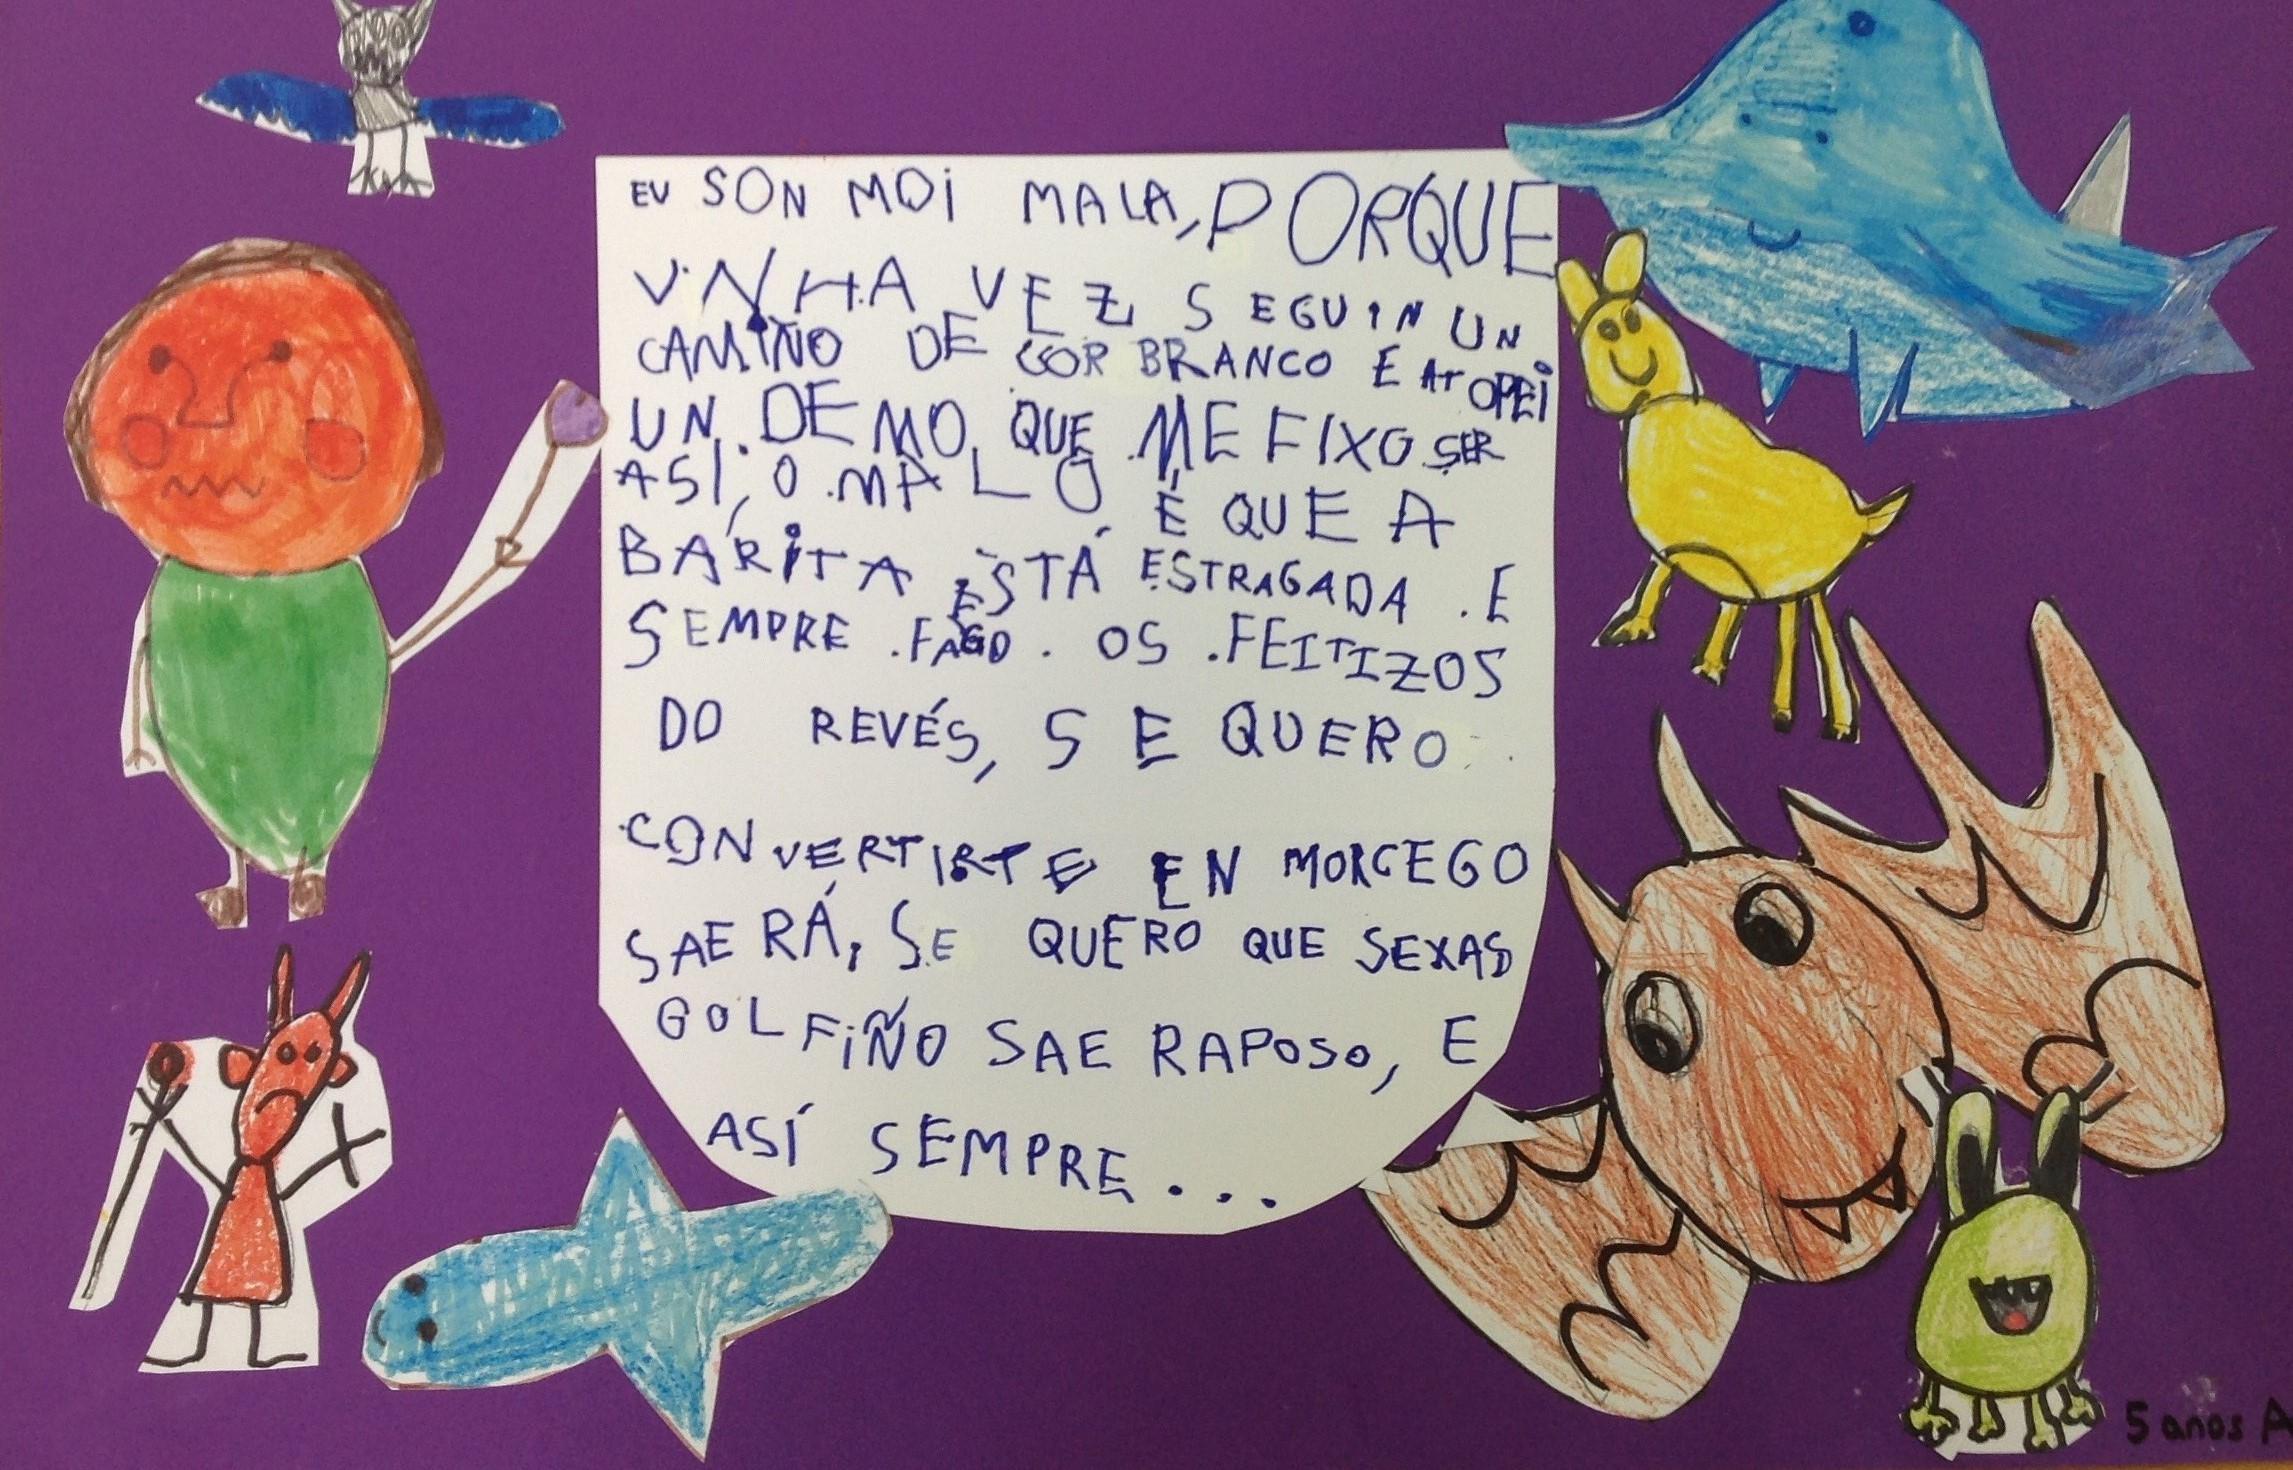 EU SON MOI MALA, PORQUE
UNHA VEZ SEGUIN UN
CAMIÑO DE COR BRANCO E ATOPEI
UN DEMO QUE ME FIXO SER
ASÍ, O MALO É QUE A
BARITA ESTÁ ESTRAGADA. E
SEMPRE FAGO OS FEITIZOS
DO REVÉS, SE QUERO
CONVERTIRTE EN MORCEGO
SAERÁ, SE QUERO QUE SEXAS
GOLFIÑO SAE RAPOSO, E
ASÍ SEMPRE...
5 anos A